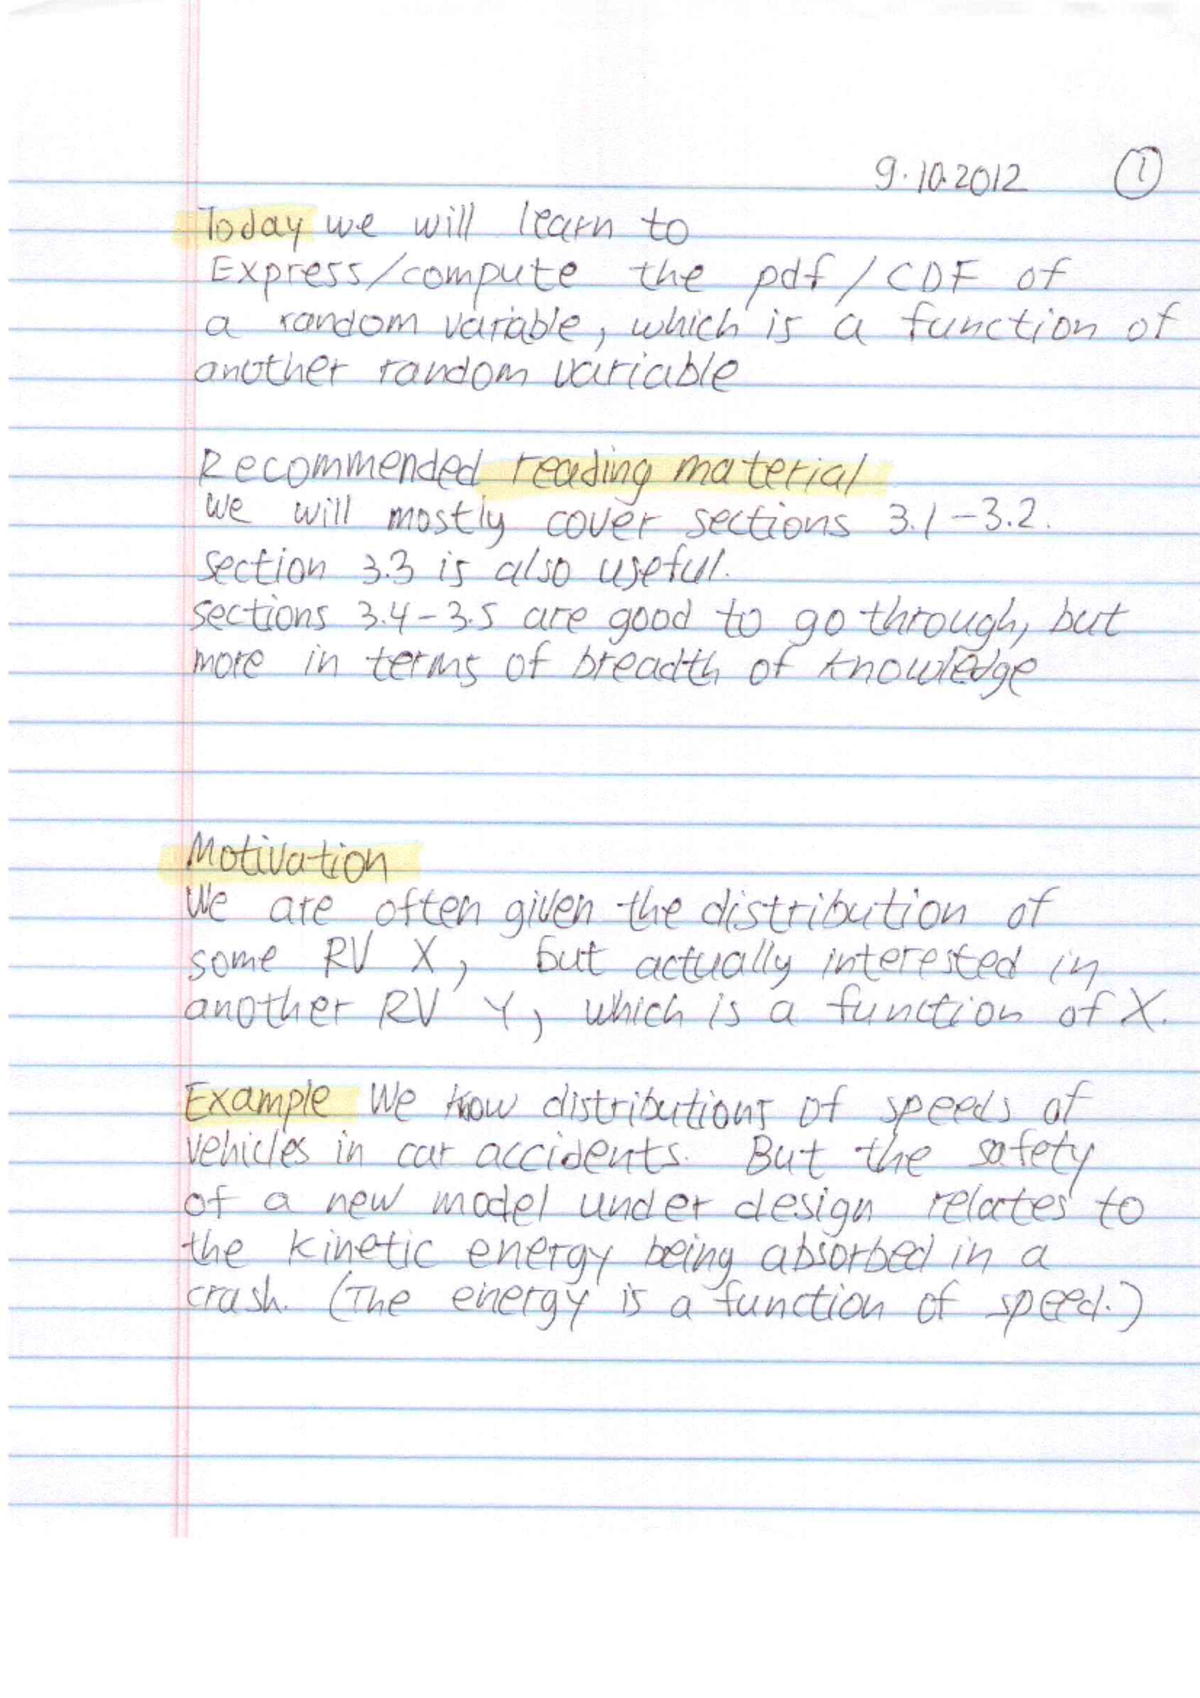 9.10.2012 1
Today we will learn to
Express/compute the pdf/CDF of
a random variable, which is a function of
another random variable
Recommended reading material
We will mostly cover sections 3.1-3.2.
Section 3.3 is also useful.
Sections 3.4-3.5 are good to go through, but
more in terms of breadth of knowledge
Motivation
We are often given the distribution of
some RV X, but actually interested in
another RV Y, which is a function of X.
Example We know distributions of speeds of
vehicles in car accidents. But the safety
of a new model under design relates to
the kinetic energy being absorbed in a
crash. (The energy is a function of speed.)